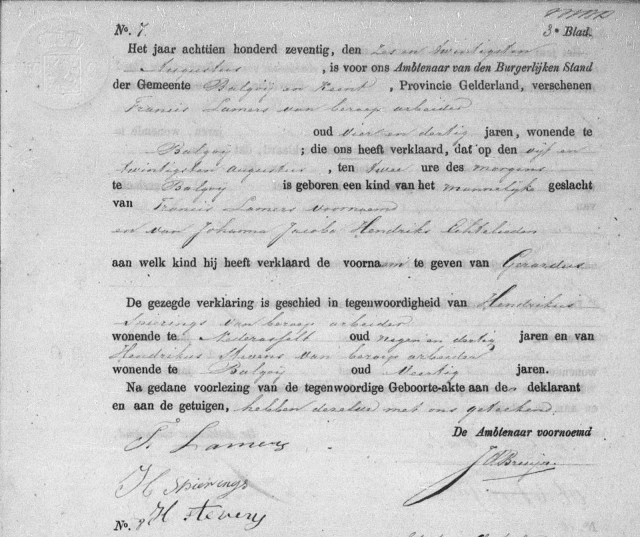 No. 7.
3e Blad.
Het jaar achttien honderd zeventig, den zes en twintigsten
Augustus , is voor ons Ambtenaar van den Burgerlijken Stand
der Gemeente Balgoij en Keent , Provincie Gelderland, verschenen
Francis Lamers van beroep arbeider
oud vier en dertig jaren, wonende te
Balgoij ; die ons heeft verklaard, dat op den vijf en
twintigsten augustus , ten twee ure des morgens
te Balgoij is geboren een kind van het mannelijke geslacht
van Francis Lamers voornoemd
en van Johanna Jacoba Hendriks Echtelieden
aan welk kind hij heeft verklaard de voornaam te geven van Gerardus
De gezegde verklaring is geschied in tegenwoordigheid van Hendrikus
Spierings van beroep arbeider
wonende te Nederasselt oud negen en dertig jaren en van
Hendrikus Stevens van beroep arbeider
wonende te Balgoij oud veertig jaren.
Na gedane voorlezing van de tegenwoordige Geboorte-akte aan de deklarant
en aan de getuigen, hebben dezelve met ons geteekend.
De Ambtenaar voornoemd
F. Lamers
H Spierings
H Stevens
No. 8